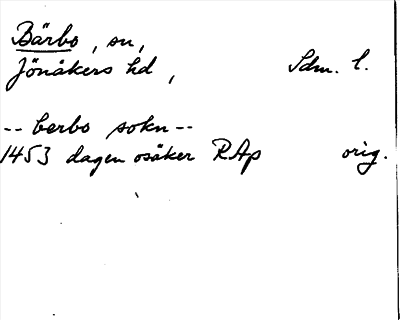 Bärbo, sn,
Jönåkers hd, Sdm. l.
-- berbo sokn --
1453 dagen osäker RAp orig.